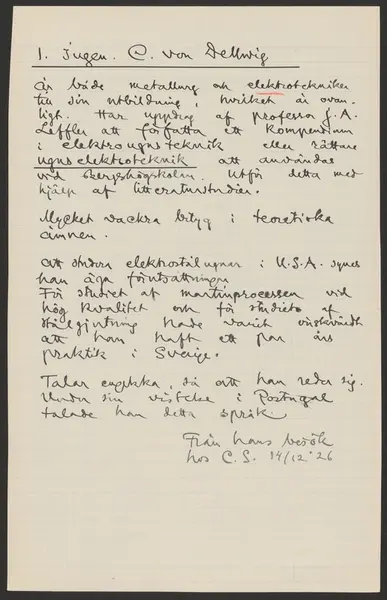 1. Ingen. C. von Dellwig
är både metallurg och elektrotekniker
till sin utbildning, hvilket är ovan-
ligt. Har uppdrag af professor J. A.
Leffler att författa ett kompendium
i elektrougnsteknik eller rättare
ugnselektroteknik att användas
vid Bergshögskolan. Utför detta med
hjälp af litteraturstudier.
Mycket vackra betyg i teoretiska
ämnen.
Att studera elektrostålugnar i U.S.A. synes
han äga förutsättningar
För studiet af martinprocessen vid
hög kvalitet och för studiet af
stålgjutning hade varit önskvärdt
att han haft ett par års
praktik i Sverige.
Talar engelska, så att han reder sig.
Under sin vistelse i Portugal
talade han detta språk.
Från hans besök
hos C. S. 14/12 '26